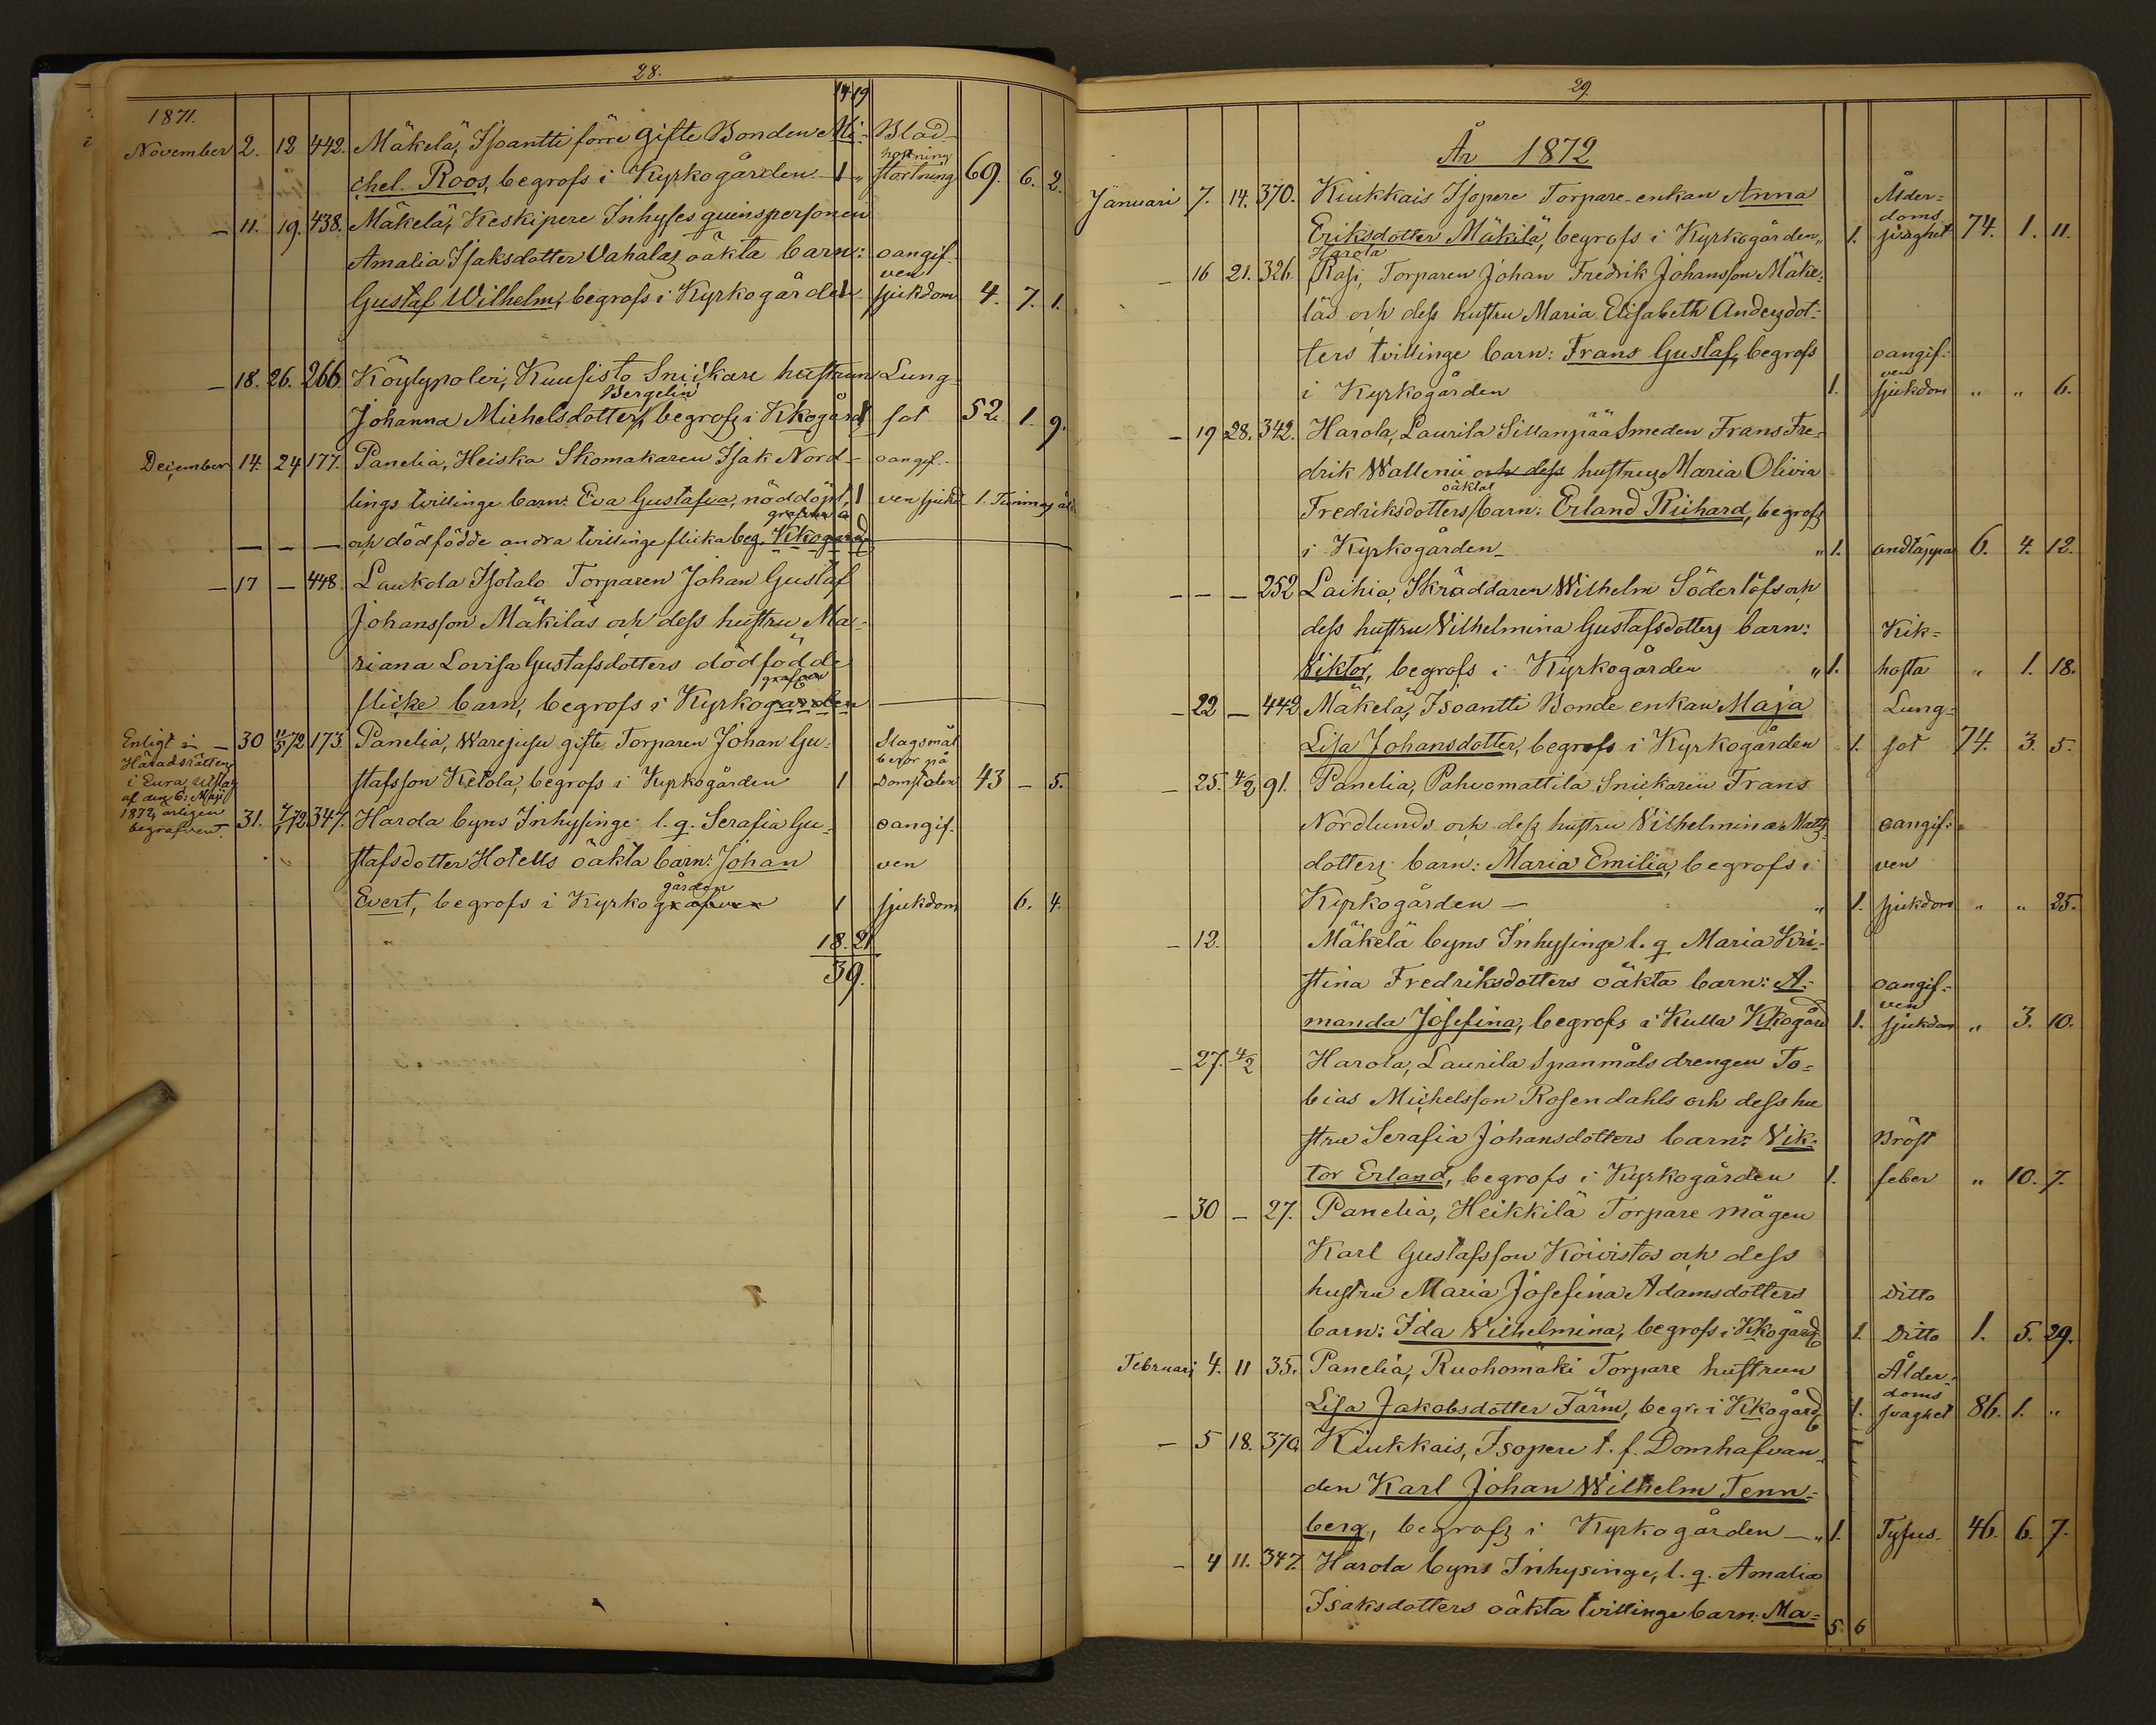 28.
17 19
1871.
November 2. 12 442. Mäkelä, Isoantti förre gifte Bonden Mi- Blod-
hostning
chel Roos, begrofs i Kyrkogården 1 " stortning 69. 6. 2.
— 11. 19. 438. Mäkelä, Keskipere Inhyses qvinspersonen
Amalia Isaksdotter Vahalas oäkta barn: oangif-
ven
Gustaf Wilhelm, begrofs i Kyrkogården 1 sjukdom 4. 7. 1.
— 18. 26. 266. Köylypoleri, Kuusisto Snickare hustrun Lung-
Bergelin
Johanna Michelsdotter, begrofs i Kkogård 1 sot 52 1. 9.
December 14. 24 177. Panelia, Heiska Skomakaren Isak Nord- oangif-
lings tvillinge barn: Eva Gustafva, nöddöpt, 1 ven sjukd 1. Timmas åld.
grafven a
— — — och dödfödde andra tvillinge flicka beg. Kkogård
— 17 — 448. Laukola Isotalo Torparen Johan Gustaf
Johansson Mäkiläs och dess hustru Ma-
riana Lovisa Gustafsdotters dödfödde
grafven
flicke barn, begrofs i Kyrkogården
Enligt — 30 11/5 72 173. Panelia, Warejusu gifte Torparen Johan Gu- Slagsmål
Häradsrättens
i Eura Utslag
af den 6: Maji
1872, ärligen
begrafven.
beror på
stafsson Ketola, begrofs i Kyrkogården 1 Domstolen 43 — 5.
31. 7/1 72. 347. Harola byns Inhysinge l. q. Serafia Gu- oangif-
stafsdotter Hotells oäkta barn: Johan ven
gården
Evert, begrofs i Kyrkografven 1 sjukdom 6. 4.
18. 21
39.
29.
År 1872
Januari 7. 14. 370. Kiukkais Isopere Torpare-enkan Anna Ålder-
doms
Eriksdotter Mäkilä, begrofs i Kyrkogården " 1. svaghet 74. 1. 11.
Harola
— 16 21. 326. Rasi, Torparen Johan Fredrik Johansson Mäke-
läs och dess hustru Maria Elisabeth Andersdot-
ters tvillinge barn: Frans Gustaf, begrofs oangif-
ven
i Kyrkogården 1. sjukdom " " 6.
— 19 28. 342. Harola, Laurila Sillanpää Smeden Frans Fre-
drik Wallenii och dess hustrus Maria Olivia
oäktat
Fredriksdotters barn: Erland Richard, begrofs
i Kyrkogården — " 1. andtäppa 6. 4. 12.
— — — 252 Laihia, Skräddaren Wilhelm Söderlöfs och
dess hustru Vilhelmina Gustafsdotters barn: Kik-
Viktor, begrofs i Kyrkogården " 1. hosta " 1. 18.
— 22 — 442 Mäkelä, Isoantti Bonde enkan Maja Lung-
Lisa Johansdotter, begrofs i Kyrkogården 1. sot 74. 3. 5.
— 25. 4/2 91. Panelia, Pahvomattila Snickaren Frans
Nordlunds och dess hustru Vilhelmina Matts oangif-
dotters barn: Maria Emilia, begrofs i ven
Kyrkogården — " 1. sjukdom " " 25.
— 12. Mäkelä byns Inhysinge l. q Maria Kri-
stina Fredriksdotters oäkta barn: A- oangif-
ven
manda Josefina, begrofs i Kulla Kkogård 1. sjukdom " 3. 10.
— 27. 4/2 Harola, Laurila Spanmåls drengen To-
bias Michelsson Rosendahls och dess hu
stru Serafia Johansdotters barn: Vik- Bröst
tor Erland, begrofs i Kyrkogården 1. feber " 10. 7.
— 30 — 27. Panelia, Heikkilä Torpare mågen
Karl Gustafsson Koivistos och dess
hustru Maria Josefina Adamsdotters ditto
barn: Ida Vilhelmina, begrofs i Kkogård 1. Ditto 1. 5. 29.
Februari 4. 11 35. Panelia, Ruohomäki Torpare hustrun Ålder-
doms
Lisa Jakobsdotter Färm, begr. i Kkogård 1. svaghet 86. 1. "
— 5 18. 370. Kiukkais, Isopere t. f. Domhafvan-
den Karl Johan Wilhelm Tenn-
berg, begrofs i Kyrkogården — " 1. Tyfus. 46. 6. 7.
— 4 11. 347. Harola byns Inhysinge, l. q. Amalia
Isaksdotters oäkta tvillinge barn: Ma-
5 6